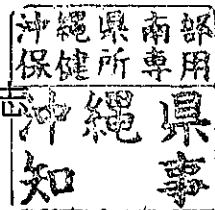 沖縄県南部
保健所専用
志
沖縄県
知事